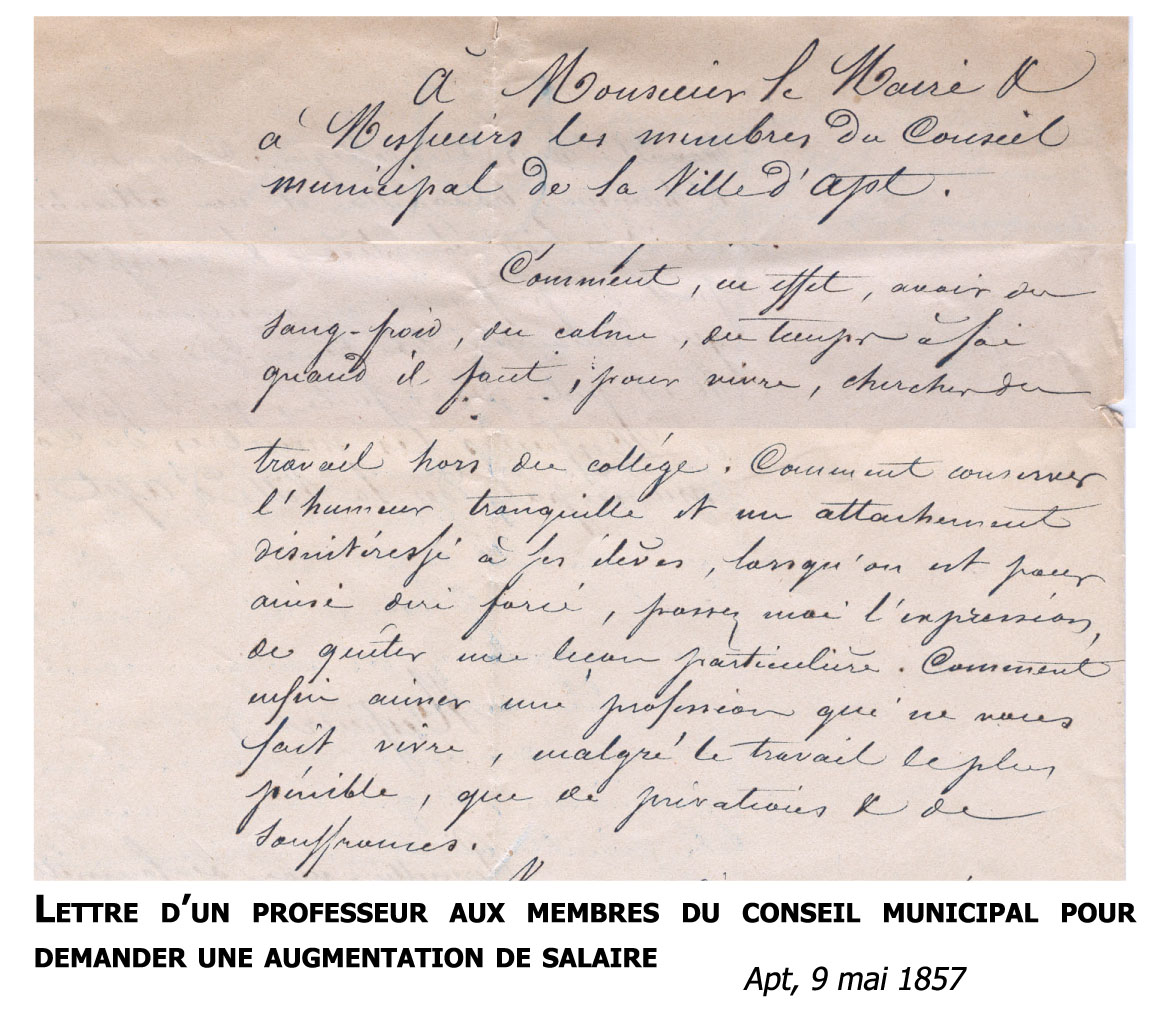 À Monsieur le Maire &
à Messieurs les membres du Conseil
municipal de la Ville d'Apt.
Comment, en effet, avoir du
sang-froid, du calme, du temps à soi
quand il faut, pour vivre, chercher du
travail hors du collége. Comment conserver
l'humeur tranquille et un attachement
désintéressé à ses élèves, lorsqu'on est pour
ainsi dire forcé, passez moi l'expression,
de quêter une leçon particulière. Comment
enfin aimer une profession qui ne vous
fait vivre, malgré le travail le plus
pénible, que de privations & de
souffrances.
LETTRE D'UN PROFESSEUR AUX MEMBRES DU CONSEIL MUNICIPAL POUR
DEMANDER UNE AUGMENTATION DE SALAIRE
Apt, 9 mai 1857